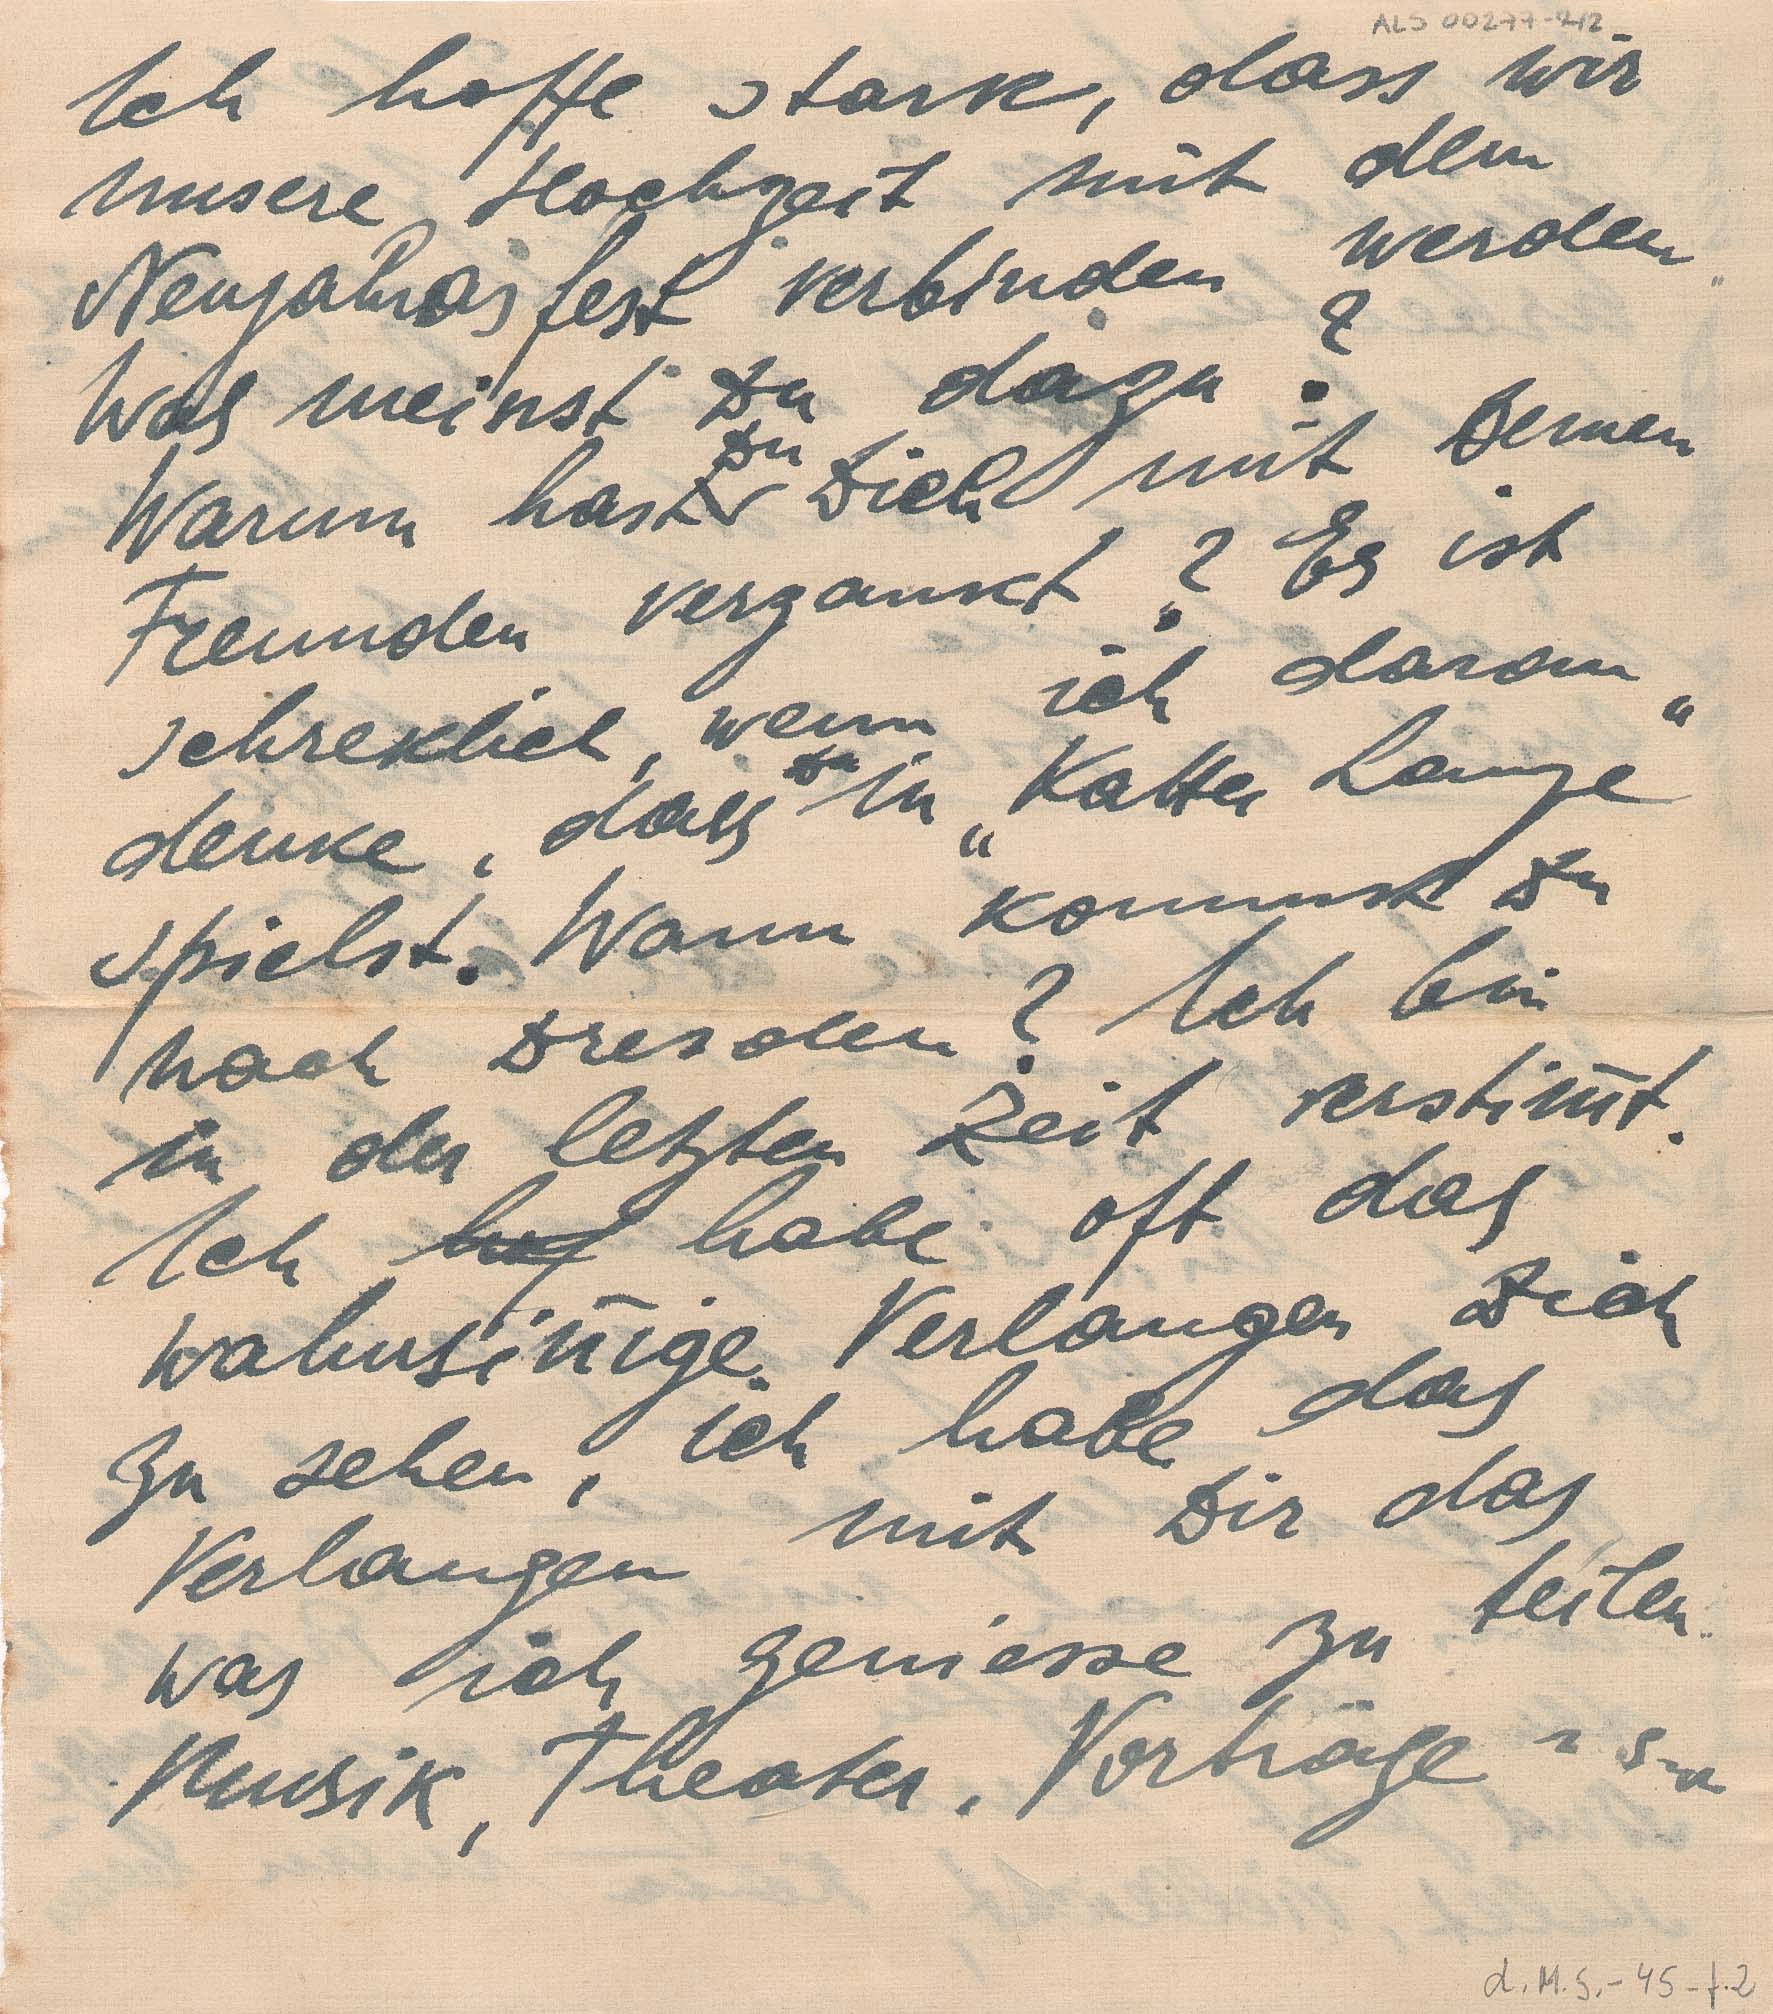 ALS 00277-212
Ich hoffe stark, dass wir
unsere Hochzeit mit dem
Neujahrsfest verbinden werden
Was meinst Du dazu?
Warum hast Du Dich mit Deinen
Freunden verzankt? Es ist
schreklich, wenn ich daran
denke, dass Du in „Katter Lange"
spielst. Wann kommst Du
nach Dresden? Ich bin
in der letzten Zeit verstim̄t.
Ich habe oft das
wahnsin̄ige Verlangen Dich
zu sehen, ich habe das
Verlangen mit Dir das,
was ich geniesse zu teilen.
Musik, Theater, Vorträge
d.M.S.-45-f.2